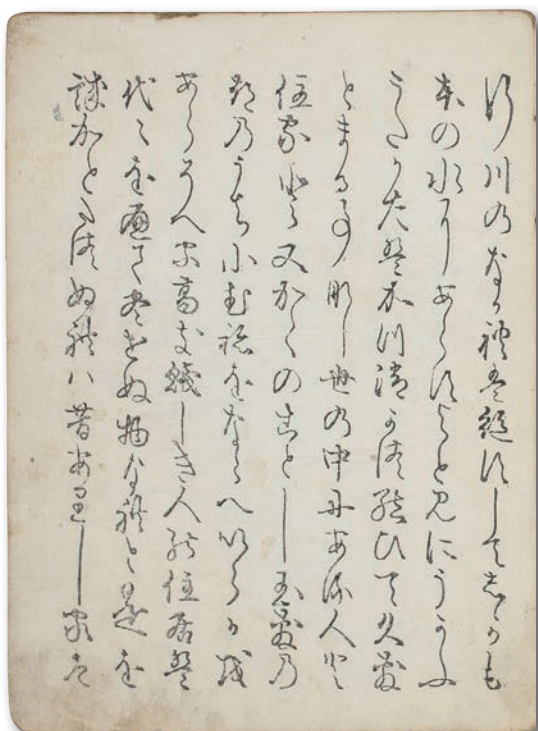 行川のなかれは絶すしてしかも
本の水にあらすよとみにうかふ
うたかたはかつ消かつ結ひて久敷
とまる事なし世の中にある人と
住家と又かくのことし玉敷の
都のうちにむねをならへいらかを
あらそへる高き賤しき人の住居は
代々をへて尽せぬ物なれと是を
誠かとたつぬれハ昔ありし家は